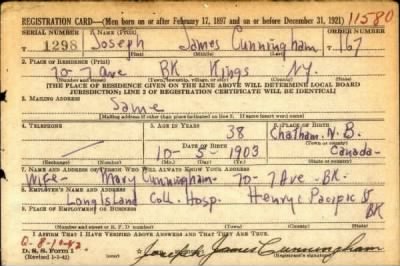 REGISTRATION CARD—(Men born on or after February 17, 1897 and on or before December 31, 1921) 11580
SERIAL NUMBER 1. NAME (Print) ORDER NUMBER
T 1298 Joseph James Cunningham T 167
(First) (Middle) (Last)
2. PLACE OF RESIDENCE (Print)
70-7 Ave BK Kings N.Y.
(Number and street) (Town, township, village, or city) (County) (State)
[THE PLACE OF RESIDENCE GIVEN ON THE LINE ABOVE WILL DETERMINE LOCAL BOARD
JURISDICTION; LINE 2 OF REGISTRATION CERTIFICATE WILL BE IDENTICAL]
3. MAILING ADDRESS
Same
[Mailing address if other than place indicated on line 2. If same insert word same]
4. TELEPHONE 5. AGE IN YEARS 6. PLACE OF BIRTH
38 Chatham. N.B.
DATE OF BIRTH
10-5-1903 Canada
(Exchange) (Number) (Mo.) (Day) (Yr.) (State or country)
7. NAME AND ADDRESS OF PERSON WHO WILL ALWAYS KNOW YOUR ADDRESS
Wife - Mary Cunningham - 70-7 Ave - BK.
8. EMPLOYER'S NAME AND ADDRESS
Long Island Coll. Hosp. Henry & Pacific St
9. PLACE OF EMPLOYMENT OR BUSINESS BK
(Number and street or R. F. D. number) (Town) (County) (State)
I AFFIRM THAT I HAVE VERIFIED ABOVE ANSWERS AND THAT THEY ARE TRUE.
D. S. S. Form 1
(Revised 1-1-42)
Joseph James Cunningham